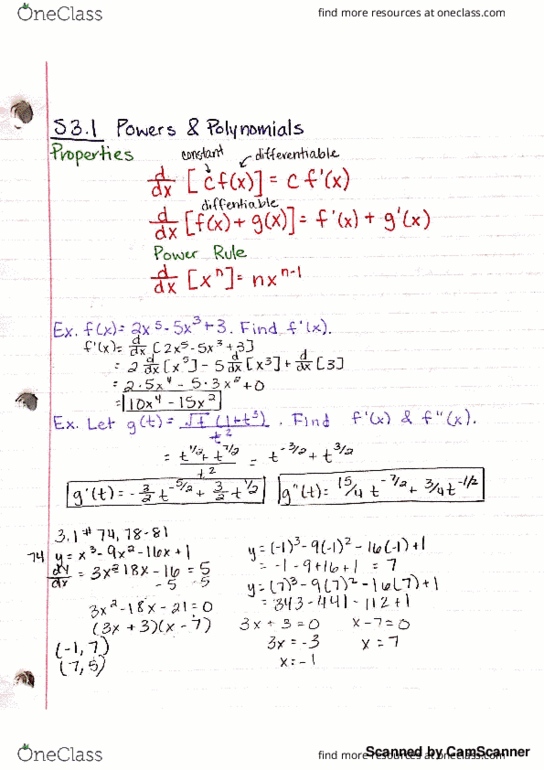 OneClass
find more resources at oneclass.com
S3.1 Powers & Polynomials
Properties
constant differentiable
d/dx [c f(x)] = c f'(x)
diffentiable
d/dx [f(x) + g(x)] = f'(x) + g'(x)
Power Rule
d/dx [xⁿ] = nxⁿ⁻¹
Ex. f(x) = 2x⁵ - 5x³ + 3. Find f'(x).
f'(x) = d/dx [2x⁵ - 5x³ + 3]
= 2 d/dx [x⁵] - 5 d/dx [x³] + d/dx [3]
= 2·5x⁴ - 5·3x² + 0
= 10x⁴ - 15x²
Ex. Let g(t) = √t (1+t³) / t² . Find f'(x) & f"(x).
= t^1/2 + t^7/2 / t² = t^-3/2 + t^3/2
g'(t) = -3/2 t^-5/2 + 3/2 t^1/2 g"(t) = 15/4 t^-7/2 + 3/4 t^-1/2
3.1 # 74, 78-81
74 y = x³ - 9x² - 16x + 1
dy/dx = 3x² 18x - 16 = 5
-5 5
3x² - 18x - 21 = 0
(3x + 3)(x - 7)
(-1, 7)
(7, 5)
y = (-1)³ - 9(-1)² - 16(-1) + 1
= -1 - 9 + 16 + 1 = 7
y = (7)³ - 9(7)² - 16(7) + 1
= 343 - 441 - 112 + 1
3x + 3 = 0 x - 7 = 0
3x = -3 x = 7
x = -1
OneClass
find more resources at oneclass.com
Scanned by CamScanner